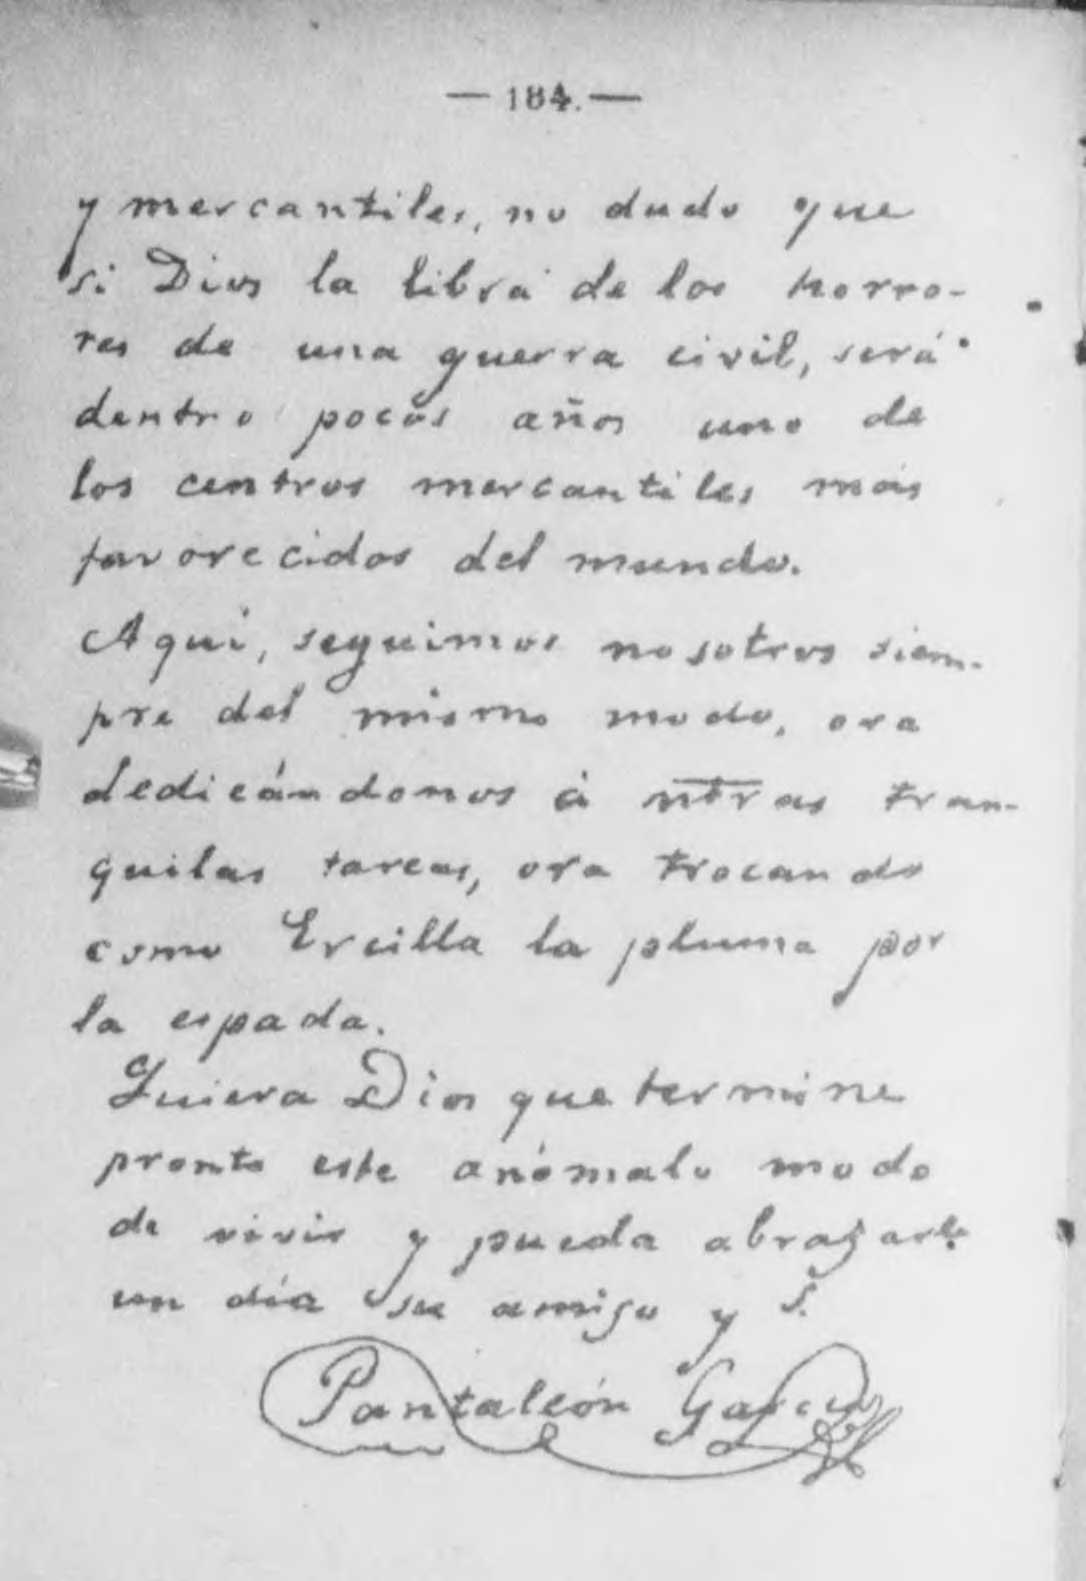 — 184. —
y mercantiles, no dudo que
si Dios la libra de los horro-
res de una guerra civil, será
dentro pocos años uno de
los centros mercantiles más
favorecidos del mundo.
Aquí, seguimos nosotros siem-
pre del mismo modo, ora
dedicándonos á ntras tran-
quilas tareas, ora trocando
como Ercilla la pluma por
la espada.
Quiera Dios que termine
pronto este anómalo modo
de vivir y pueda abrazarle
un día su amigo y S.
Pantaleón García